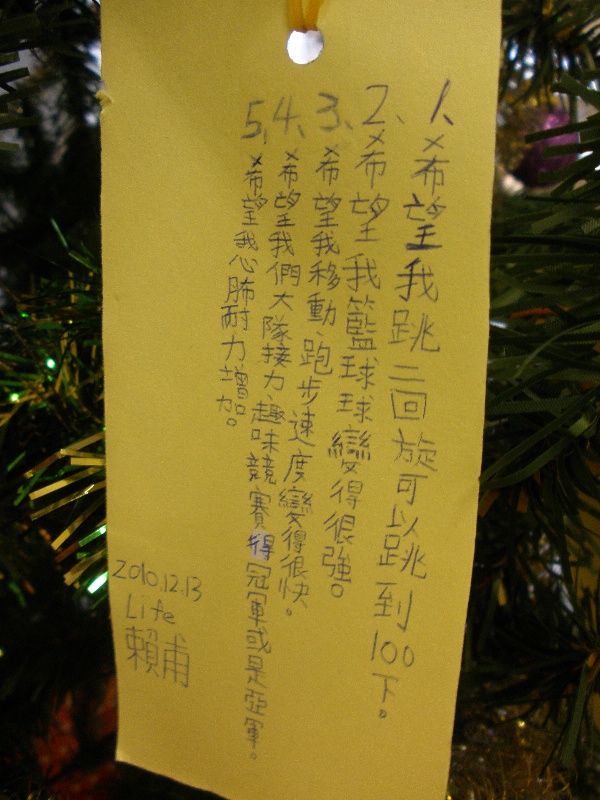 1、希望我跳二回旋可以跳到100下。
2、希望我籃球球變得很強。
3、希望我移動、跑步速度變得很快。
4、希望我們大隊接力趣味競賽得冠軍或是亞軍。
5、希望我心肺耐力增加。
2010.12.13
Life
賴甫